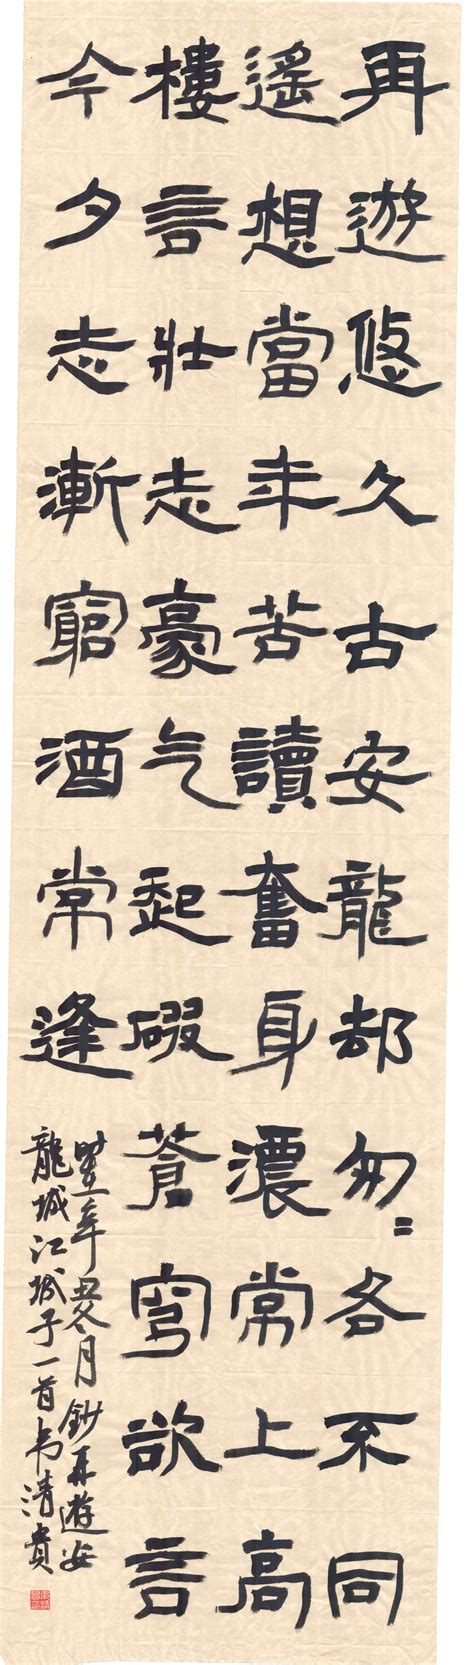 再遊悠久古安龍却匆〻各不同
遙想當年苦讀奮身濃常上高
樓言壯志豪气起蒼穹欲言
今夕志漸窮酒常逢
辛丑冬月鈔再遊安
龍城江城子一首韦清貴